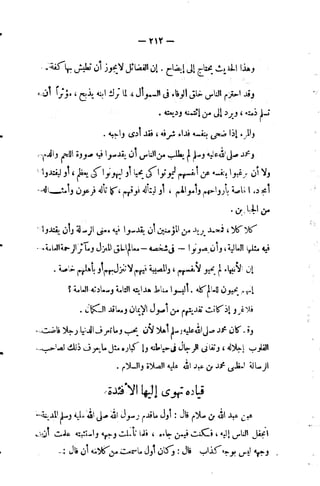 — ٢١٣ —
وهذا الحديث يحتاج إلى إيضاح . إن الفضائل لا يجوز أن تطيش بها كفة .
وقد احترم الناس خلق الوفاء في السموأل ، لما ترك ابنه يذبح ، مؤثراً أن
تسلم ذمته ، ويرد إلى من ائتمنه وديعته .
والمرء إذا ضحى بنفسه فداء شرفه ، فقد أدى واجبه .
ومحمد صلى الله عليه وسلم لم يطلب من الناس أن يقدسوا فيه صورة اللحم والدم ،
ولا أن يرغبوا بنفسه عن أنفسهم ليموتوا كي يحيا أو ليهونوا كي يعظم ، أو ليفتدوا
أمجاده الخاصة بأرواحهم وأموالهم ، أو ليتأله فوقهم ، كما تأله فرعون وأمثاله
من الجبارين .
كلا كلا ، فمحمد يريد من المؤمنين أن يقدسوا فيه معنى الرسالة وأن يفتدوا
فيه مثلها العالية ، وأن يصونوا — في شخصه — معالم الحق المنزل ومآثر الرحمة العامة .
إن الأنبياء لم يحيوا لأنفسهم ، والمصيبة فيهم لا تنزل بهم أو بأهلهم خاصة .
إنهم يحيون للعالم كله . أليسوا مناط هدايته التامة وسعادته العامة ؟
فلا غرو إذا كانت تفديتهم من أصول الإيمان ومعاقد الكمال .
وقد كان محمد صلى الله عليه وسلم أهلا لأن يحب وما تعرف الدنيا رجلا فاضت
القلوب بإجلاله ، وتفانى الرجال في حياطته وإكباره مثل ما يعرف ذلك لصاحب
الرسالة العظمى محمد بن عبد الله عليه الصلاة والسلام .
قيادة تهوى إليها الأفئدة
عن عبد الله بن سلام قال : أول ما قدم رسول الله صلى الله عليه وسلم المدينة
انجفل الناس إليه ، فكنت فيمن جاءه ، فلما تأملت وجهه واستثبته علمت أن
وجهه ليس بوجه كذاب قال : وكان أول ما سمعت من كلامه أن قال :